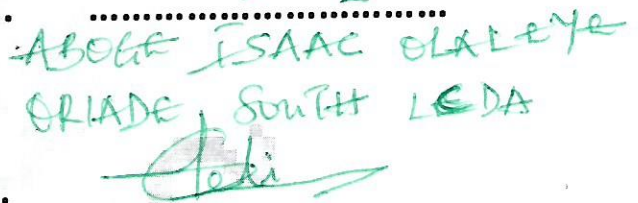 ABOGE ISAAC OLALEYE
ORIADE SOUTH LCDA